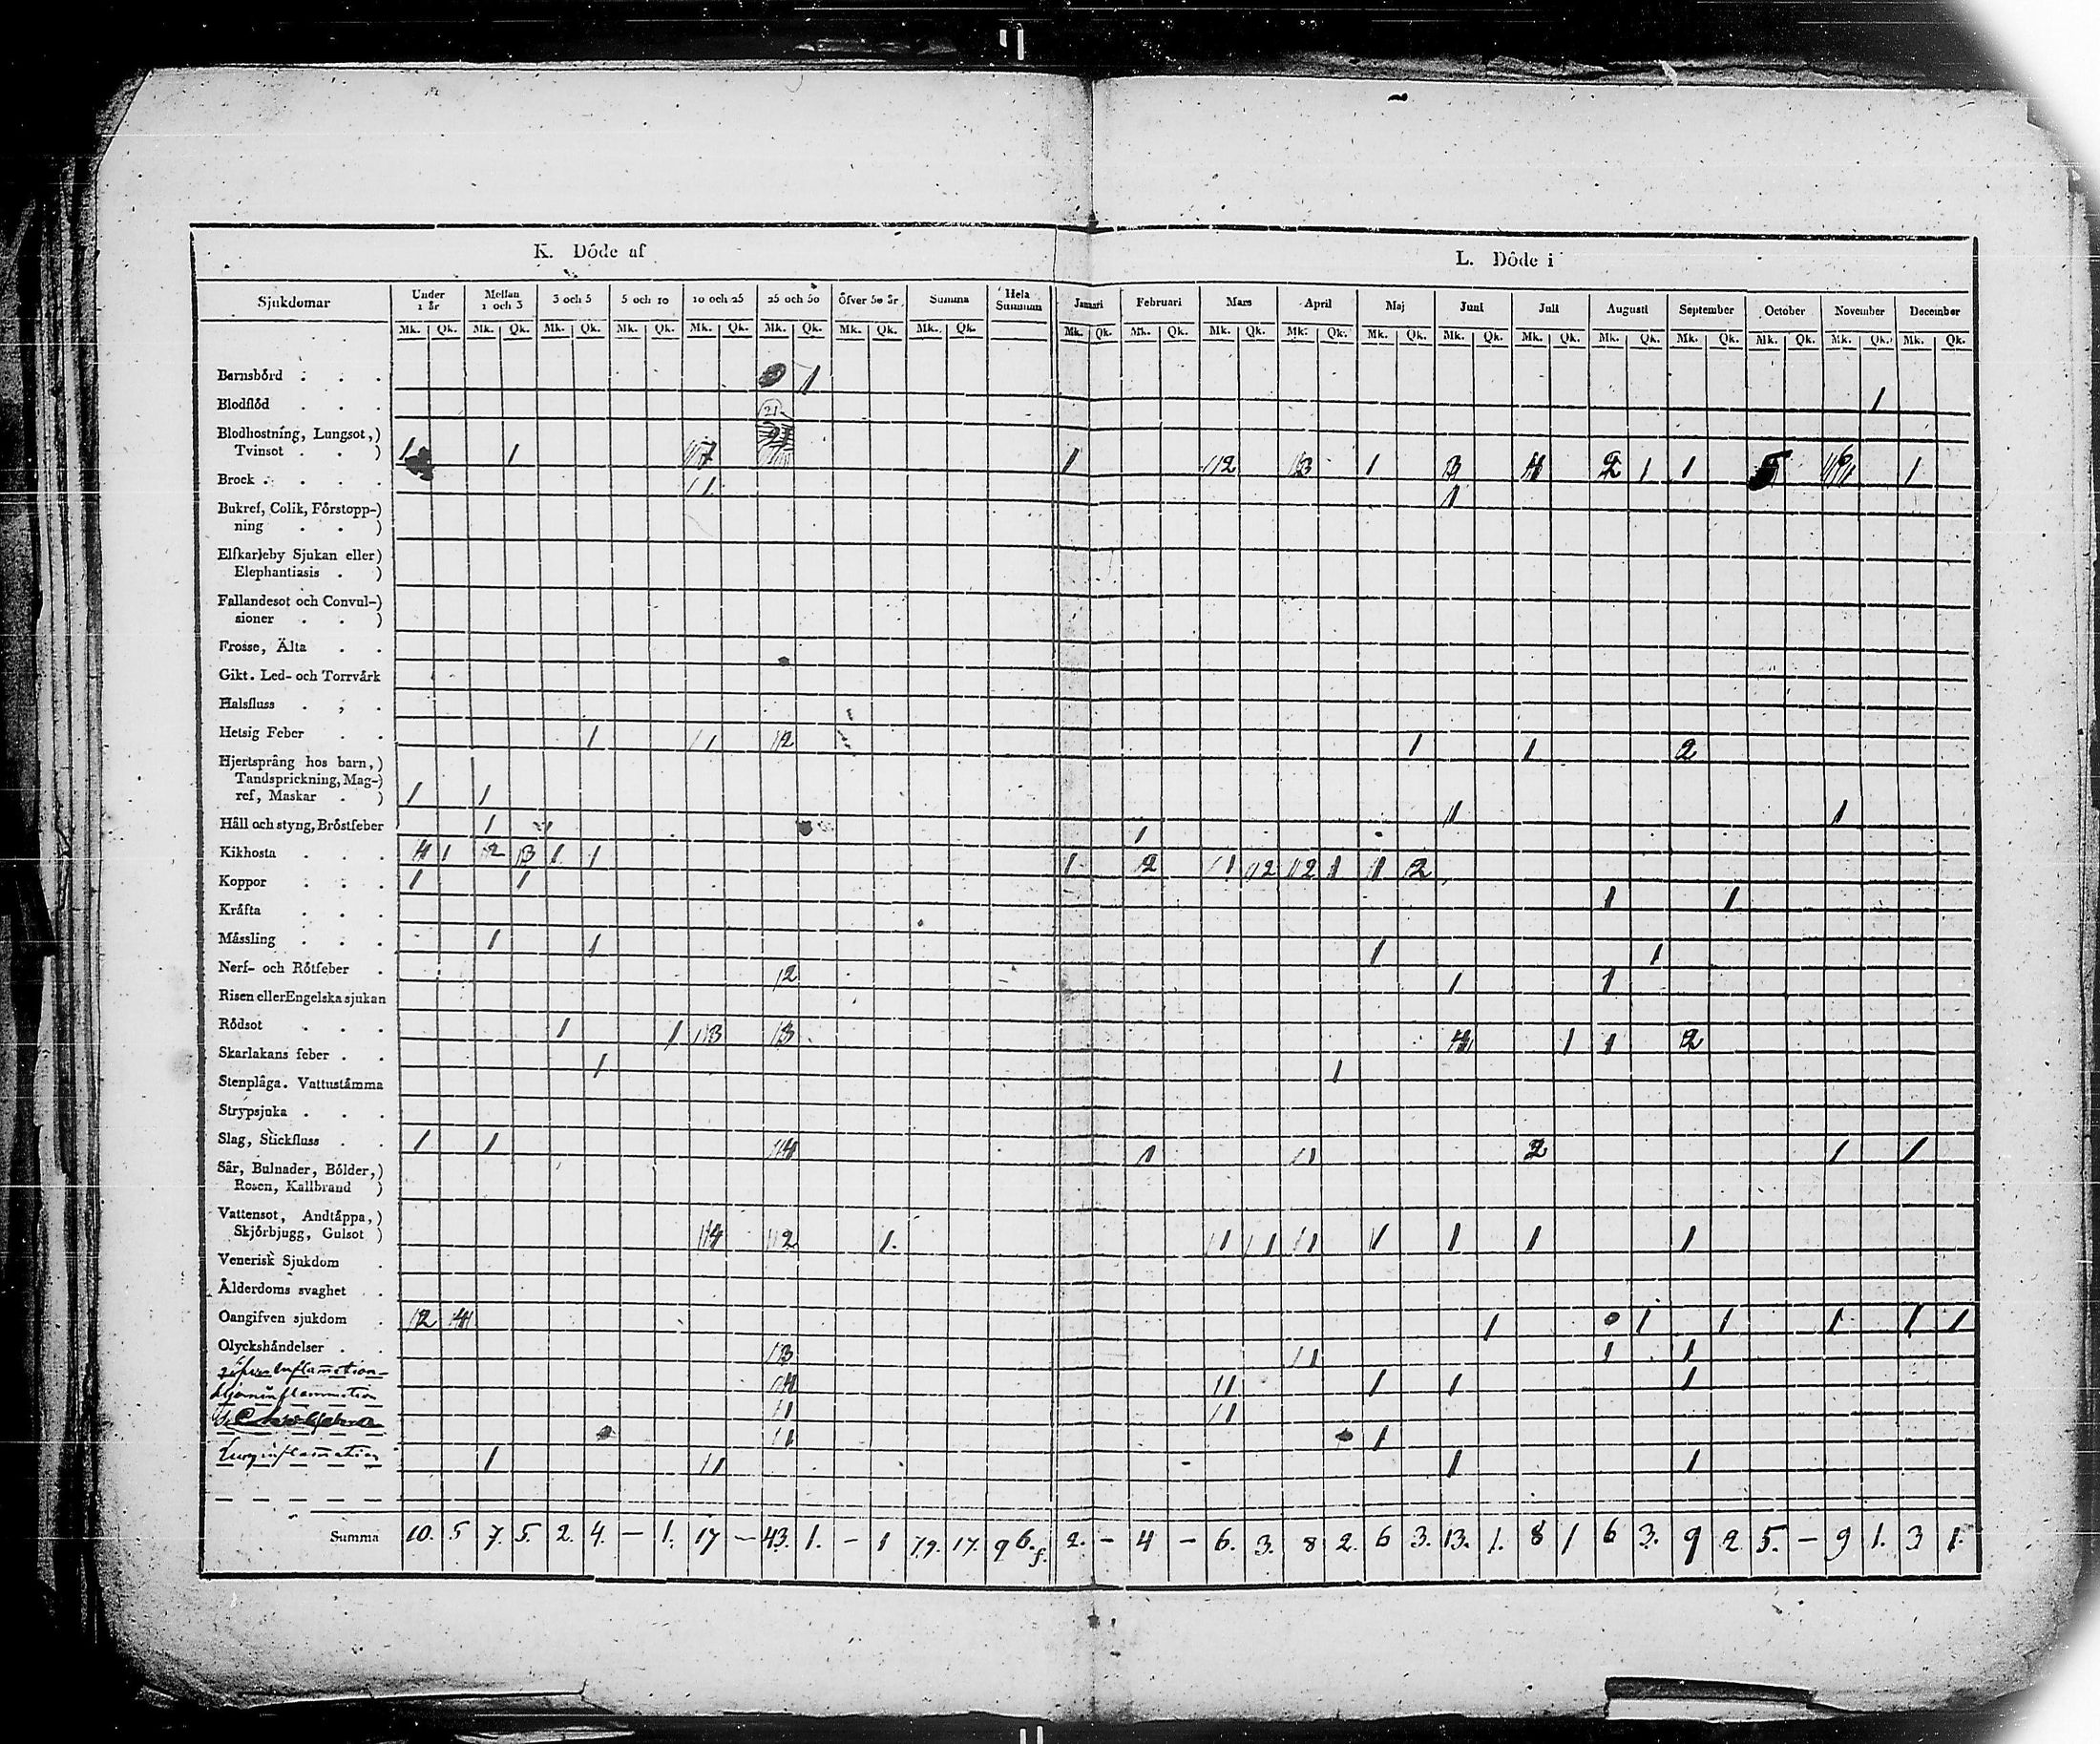 K. Döde af
L. Döde i
Sjukdomar Under 1 år Mellan 1 och 3 3 och 5 5 och 10 10 och 25 25 och 50 Öfver 50 år Summa Hela Summan Januari Februari Mars April Maj Juni Juli Augusti September October November December
Mk. Qk. Mk. Qk. Mk. Qk. Mk. Qk. Mk. Qk. Mk. Qk. Mk. Qk. Mk. Qk. Mk. Qk. Mk. Qk. Mk. Qk. Mk. Qk. Mk. Qk. Mk. Qk. Mk. Qk. Mk. Qk. Mk. Qk. Mk. Qk. Mk. Qk. Mk. Qk.
Barnsbörd . . . 1
Blodflöd . . . 21 1
Blodhostning, Lungsot,)
Tvinsot . . ) 1 1 7 1 2 3 1 3 4 2 1 1 5 6 1
Brock . . . . 1 1
Bukref, Colik, Förstopp-)
ning . . )
Elfkarleby Sjukan eller)
Elephantiasis . )
Fallandesot och Convul-)
sioner . . )
Frosse, Älta . .
Gikt. Led- och Torrvärk
Halsfluss . , .
Hetsig Feber . . 1 1 2 1 1 2
Hjertsprång hos barn,)
Tandsprickning, Mag-)
ref, Maskar . ) 1 1 1 1
Håll och styng, Bröstfeber 1 1
Kikhosta . . . 4 1 2 3 1 1 1 2 1 2 2 1 1 2
Koppor . . . 1 1 1 1
Kräfta . . .
Mässling . . . 1 1 1 1
Nerf- och Rötfeber . 2 1 1
Risen eller Engelska sjukan
Rödsot . . . 1 1 3 3 4 1 1 2
Skarlakans feber . . 1 1
Stenplåga. Vattustämma
Strypsjuka . . .
Slag, Stickfluss . . 1 1 4 1 1 2 1 1
Sår, Bulnader, Bölder,)
Rosen, Kallbrand )
Vattensot, Andtäppa,)
Skjörbjugg, Gulsot ) 4 2 1. 1 1 1 1 1 1 1
Venerisk Sjukdom .
Ålderdoms svaghet . .
Oangifven sjukdom . 2 4 1 1 1 1 1 1
Olyckshändelser . . 3 1 1 1
Inflamation 4 1 1 1 1
Hjerninflammation 1 1
1 1
Lunginflamation 1 1 1 1
Summa 10. 5 7. 5. 2. 4. — 1. 17 — 43. 1. — 1 79. 17. 96. 2. — 4 — 6. 3. 8 2. 6 3. 13. 1. 8 1 6 3. 9 2 5. — 9 1. 3 1.